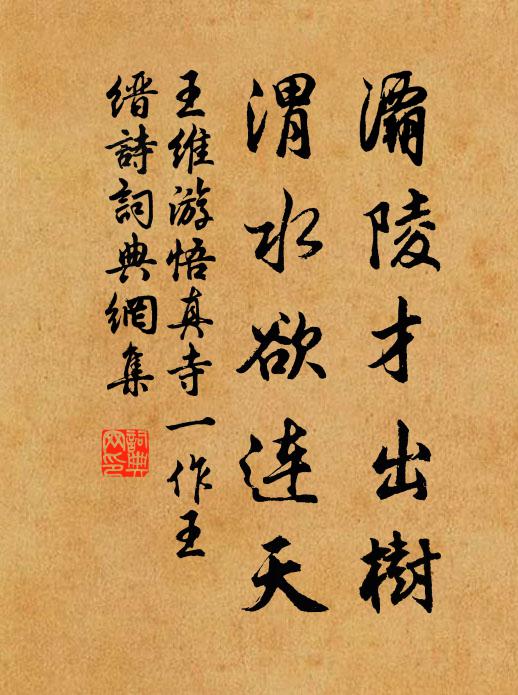 灞陵才出樹
渭水欲连天
王维游悟真寺一作王
缙詩詞典網集
詞典
网印